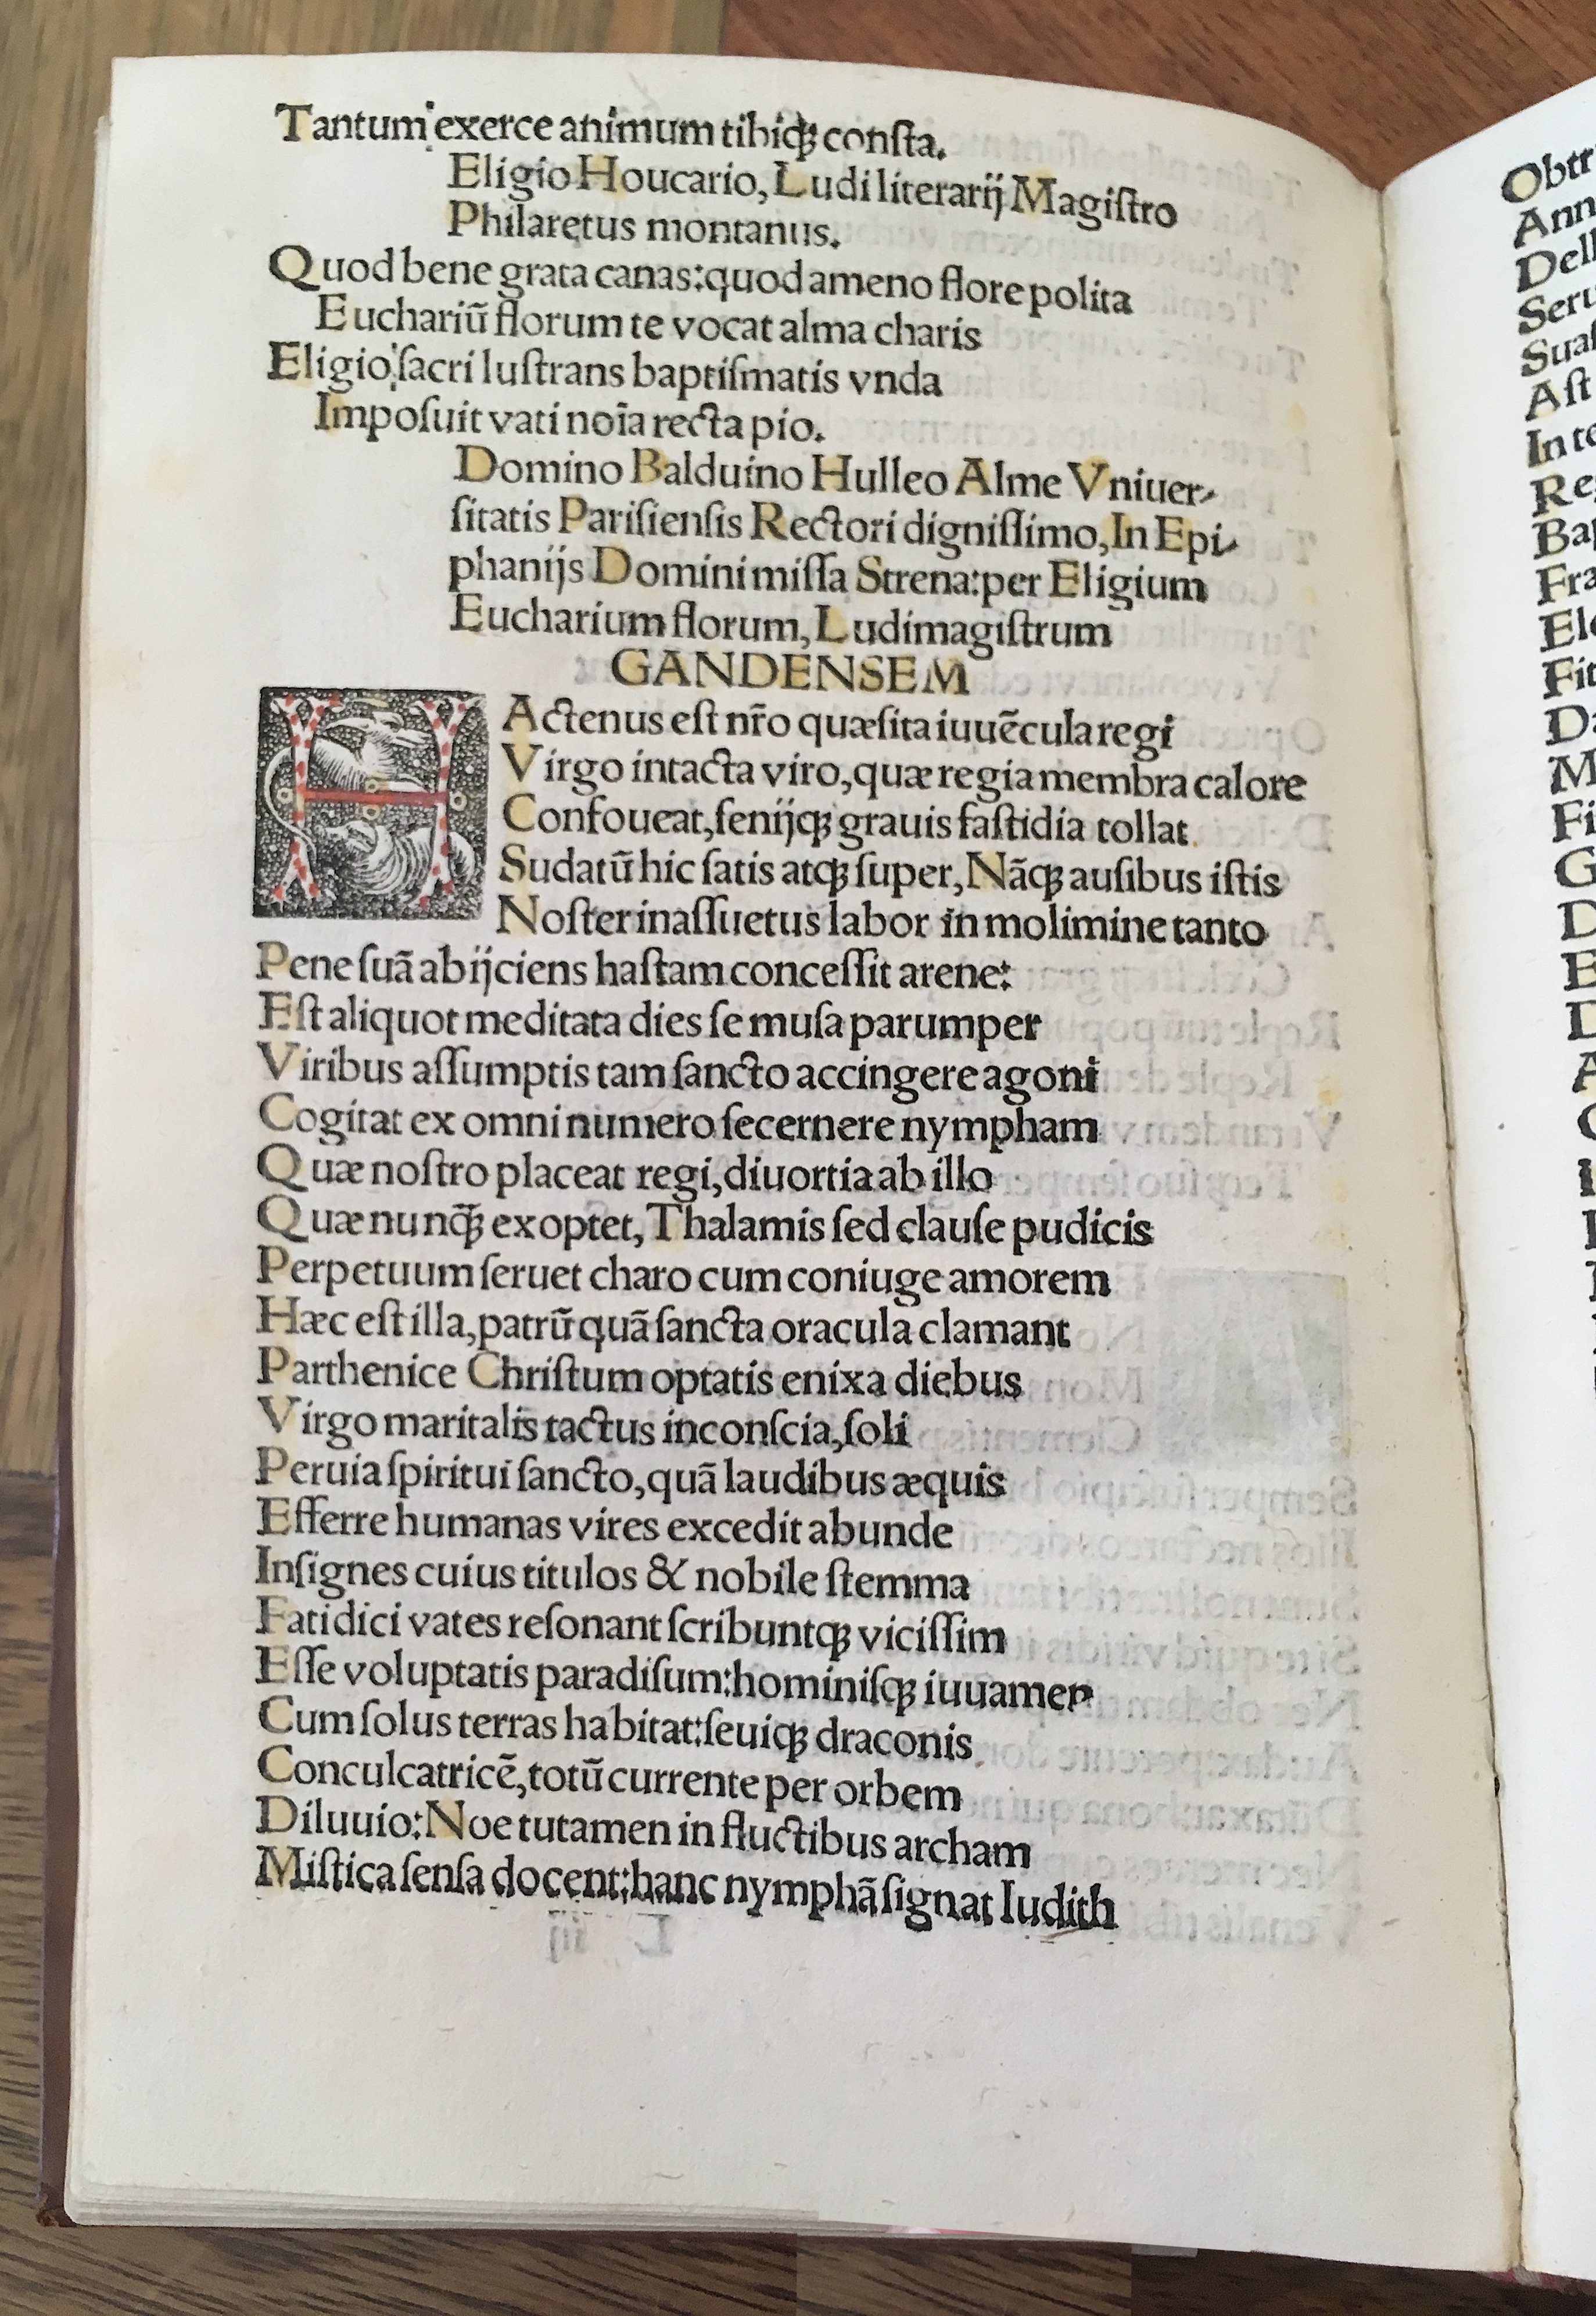 Tantum exerce animum tibiqꝫ conſta.
Eligio Houcario, Ludi literarij Magiſtro
Philaretus montanus.
Quod bene grata canas: quod ameno flore polita
Euchariū florum te vocat alma charis
Eligio ſacri luſtrans baptiſmatis vnda
Impoſuit vati noīa recta pio.
Domino Balduino Hulleo Alme Vniuer-
ſitatis Pariſienſis Rectori digniſſimo, In Epi-
phanijs Domini miſſa Strena: per Eligium
Eucharium florum, Ludimagiſtrum
GANDENSEM
HActenus eſt nr̄o quæſita iuuēcula regi
Virgo intacta viro, quæ regia membra calore
Confoueat, ſenijqꝫ grauis faſtidia tollat.
Sudatū hic ſatis atqꝫ ſuper, Nāqꝫ auſibus iſtis
Noſter inaſſuetus labor in molimine tanto
Pene ſuā abijciens haſtam conceſſit arene:
Eſt aliquot meditata dies ſe muſa parumper
Viribus aſſumptis tam ſancto accingere agoni
Cogitat ex omni numero ſecernere nympham
Quæ noſtro placeat regi, diuortia ab illo
Quæ nunq̄ꝫ exoptet, Thalamis ſed clauſe pudicis
Perpetuum ſeruet charo cum coniuge amorem
Hæc eſt illa, patrū quā ſancta oracula clamant
Parthenice Chriſtum optatis enixa diebus
Virgo maritalis tactus inconſcia, ſoli
Peruia ſpiritui ſancto, quā laudibus æquis
Efferre humanas vires excedit abunde
Inſignes cuius titulos & nobile ſtemma
Fatidici vates reſonant ſcribuntqꝫ viciſſim
Eſſe voluptatis paradiſum: hominiſqꝫ iuuamen
Cum ſolus terras habitat: ſeuiqꝫ draconis
Conculcatricē, totū currente per orbem
Diluuio: Noe tutamen in fluctibus archam
Miſtica ſenſa docent: hanc nymphā ſignat Iudith